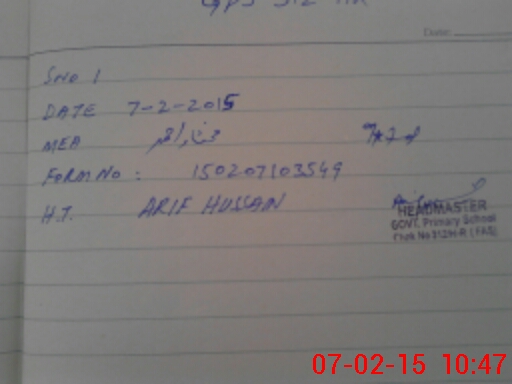 GPS 312 HR
Date:
SNO 1
DATE 7-2-2015
MEA مختار احمد
FORM NO : 150207103549
H.T. ARIF HUSSAIN
HEADMASTER
GOVT. Primary School
Chak No 312H-R (FAS)
07-02-15 10:47